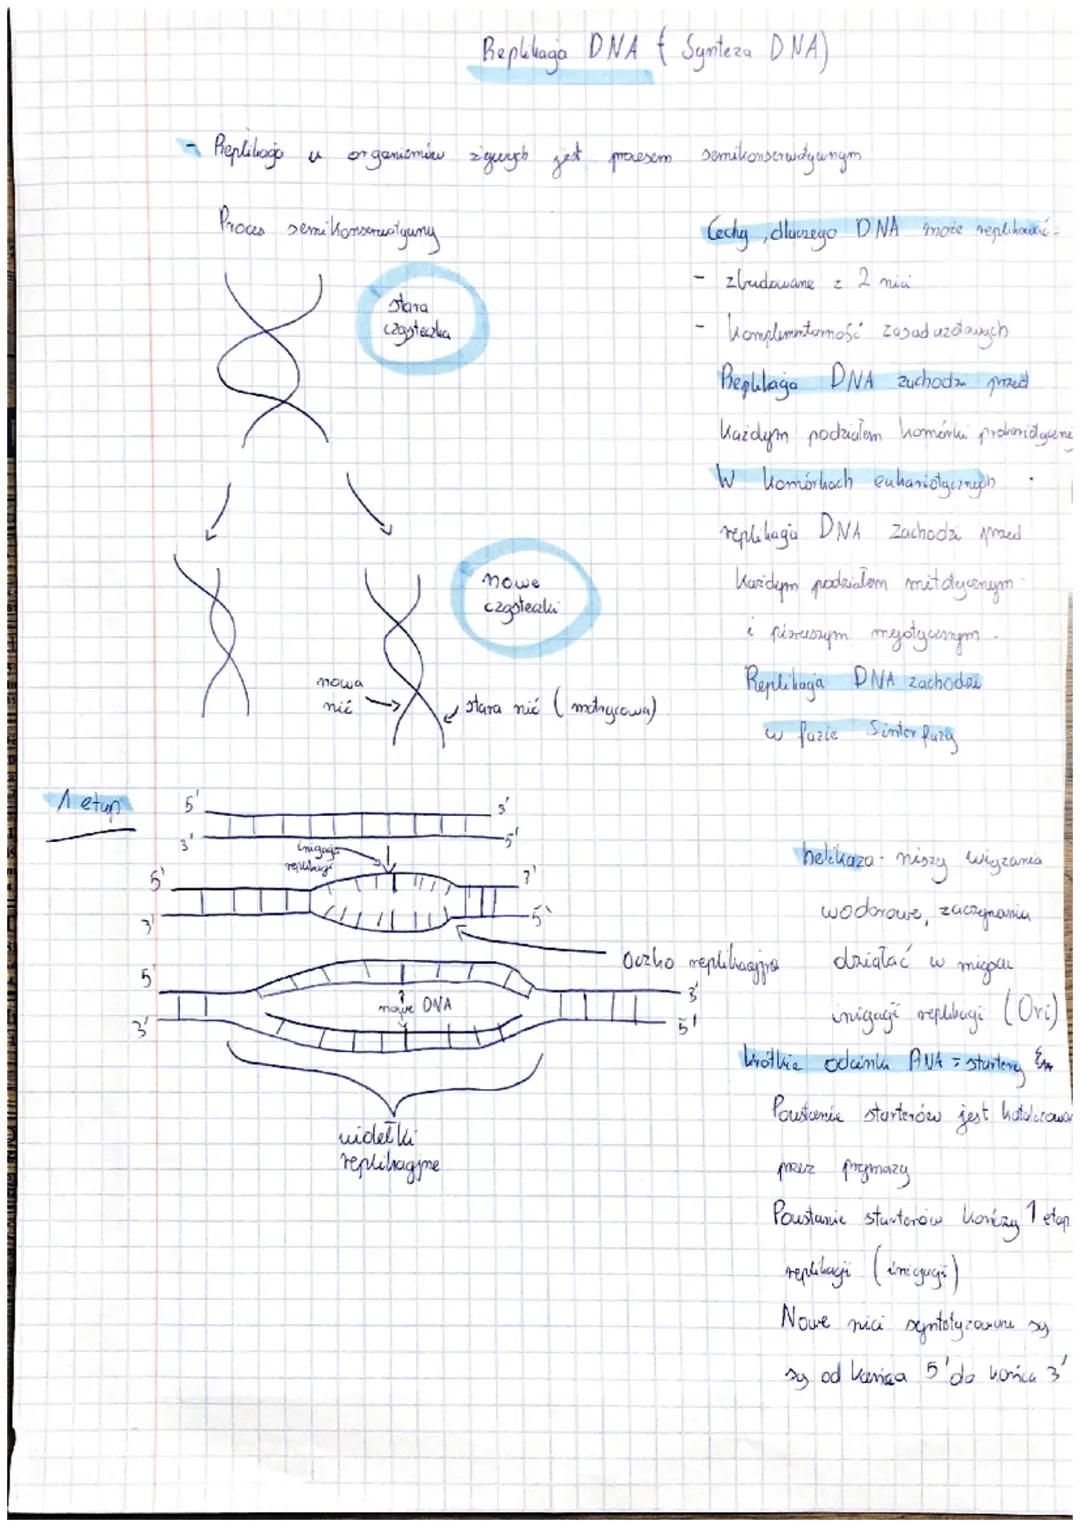 Replikacja DNA ( Synteza DNA)
- Replikacja u organizmów żywych jest procesem semikonserwatywnym
Proces semikonserwatywny
stara
cząsteczka
nowe
cząsteczki
nowa
nić
stara nić (matrycowa)
Cechy, dlaczego DNA może replikować:
- zbudowane z 2 nici
- komplementarność zasad azotowych
Replikacja DNA zachodzi przed
każdym podziałem komórki prokariotycznej
W komórkach eukariotycznych
replikacja DNA zachodzi przed
każdym podziałem mitotycznym
i pierwszym mejotycznym.
Replikacja DNA zachodzi
w fazie S interfazy
1 etap
5' 3'
3' 5'
inicjacja
replikacji
5' 3'
3' 5'
Oczko replikacyjne
5' 3'
nowe DNA
3' 5'
widełki
replikacyjne
helikaza - niszy wiązania
wodorowe, zaczynania
działać w miejscu
inicjacji replikacji (Ori)
krótkie odcinki RNA = startery
Powstanie starterów jest katalizowane
przez prymazy
Powstanie starterów kończy 1 etap
replikacji (inicjacji)
Nowe nici syntetyzowane są
są od końca 5' do końca 3'